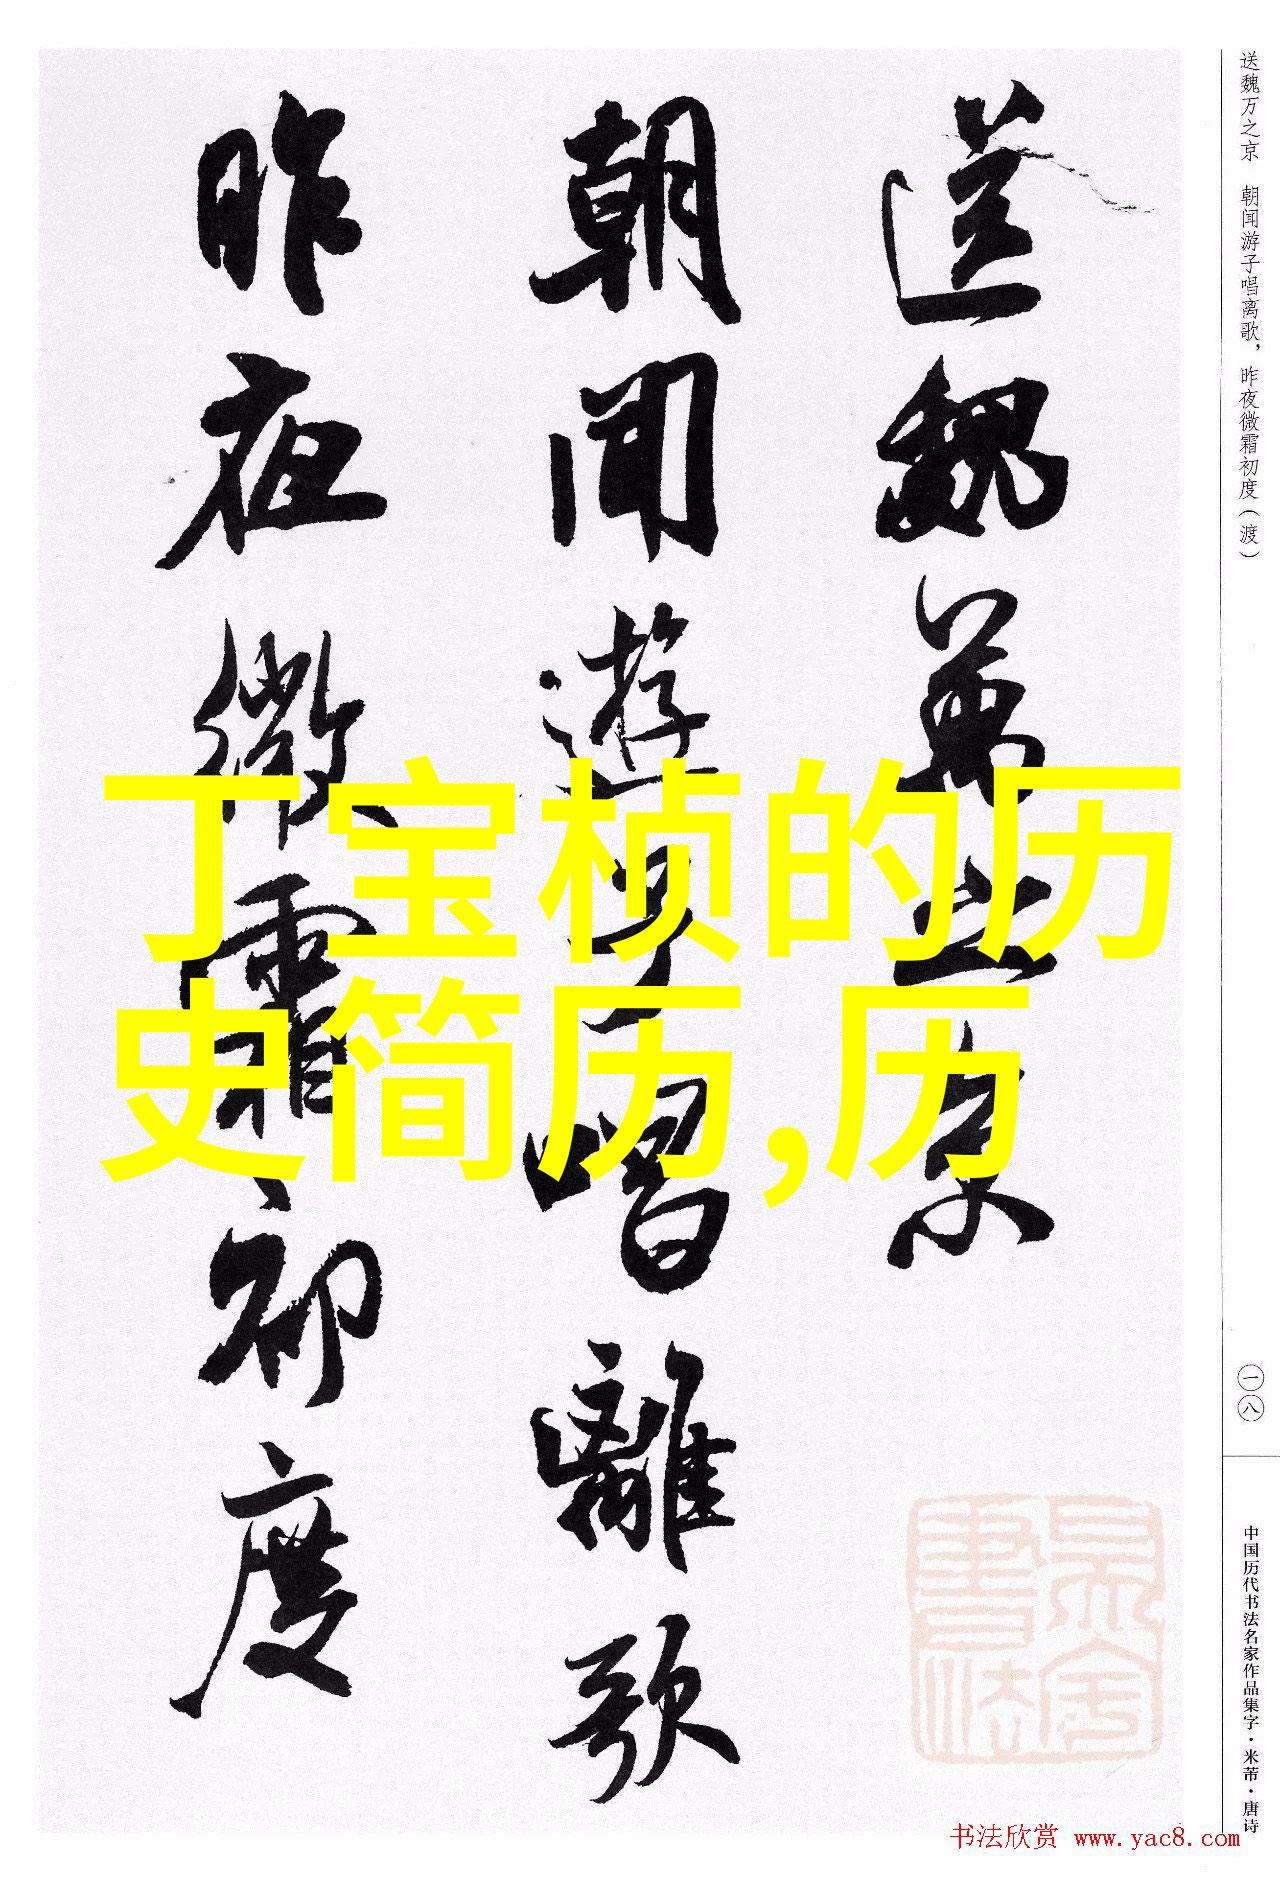 送魏万之京
朝闻游子唱离歌
昨夜微霜初度
丁宝桢的历
史简历,历
送魏万之京 朝闻游子唱离歌，昨夜微霜初度（渡）
一八
中国历代书法名家作品集字·米芾·唐诗
书法欣赏 www.yac8.com